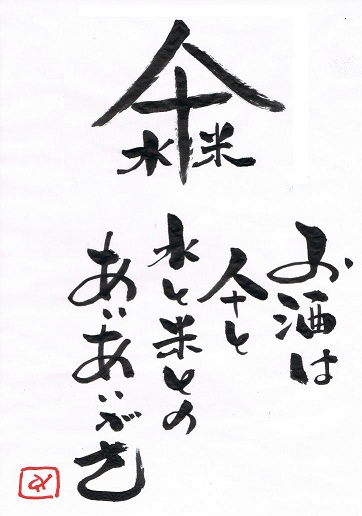 水 米
お酒は
人と
水と米との
あいあいがさ